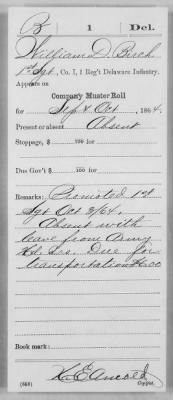 B | 1 | Del.
William D. Birch
1st Sgt, Co. I, 1 Reg't Delaware Infantry.
Appears on
Company Muster Roll
for Sep & Oct, 1864.
Present or absent Absent
Stoppage, $ 100 for
Due Gov't $ 100 for
Remarks: Promoted 1st
Sgt Oct 3/64.
Absent with
leave from Army
Hd. Qrs. Due for
transportation
Book mark:
(858)
Copyist.